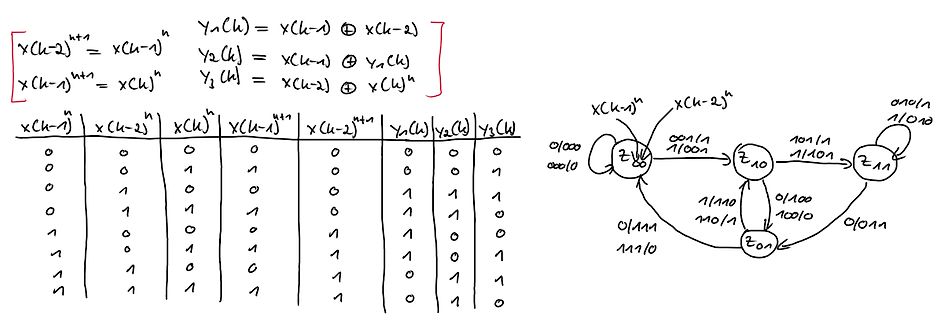 x(k-2)ⁿ⁺¹ = x(k-1)ⁿ
x(k-1)ⁿ⁺¹ = x(k)ⁿ
y1(k) = x(k-1) ⊕ x(k-2)
y2(k) = x(k-1) ⊕ y1(k)
y3(k) = x(k-2) ⊕ x(k)ⁿ
x(k-1)ⁿ x(k-2)ⁿ x(k)ⁿ x(k-1)ⁿ⁺¹ x(k-2)ⁿ⁺¹ y1(k) y2(k) y3(k)
0 0 0 0 0 0 0 0
0 0 1 1 0 0 0 1
0 1 0 0 0 1 1 1
0 1 1 1 0 1 1 0
1 0 0 0 1 1 0 0
1 0 1 1 1 1 0 1
1 1 0 0 1 0 1 1
1 1 1 1 1 0 1 0
x(k-1)ⁿ x(k-2)ⁿ
0/000
000/0
Z00
001/1
1/001
Z10
101/1
1/101
Z11
010/1
1/010
1/110
110/1
0/100
100/0
0/011
0/111
111/0
Z01